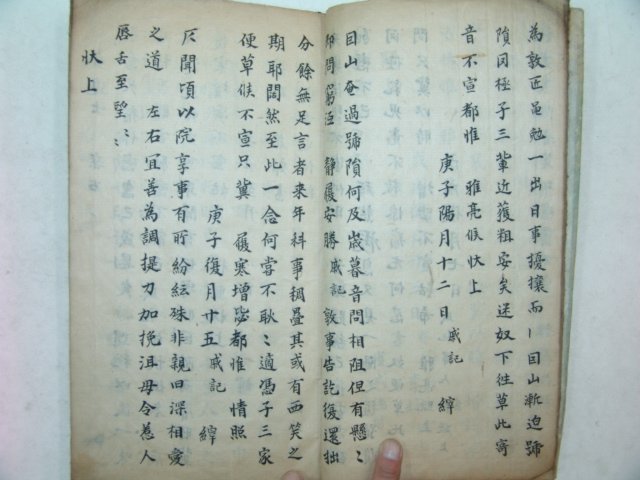 為敦匠黽勉一出日事擾攘而 目山漸迫號
隕罔極子三輩近獲粗安矣送奴下往草此寄
音不宣都惟 雅亮候狀上
庚子陽月十二日 戚記 縡
目山奄過號隕何及歲暮音問相阻但有懸〻
即問窮沍 靜履安勝戚記敦事告訖復還拙
分餘無足言者來年科事稠疊其或有西笑之
期耶闊然至此一念何嘗不耿〻適憑子三家
便草候不宣只冀 履寒增毖都惟 情照
庚子復月廿五 戚記 縡
仄聞頃以院享事有所紛紜殊非親舊深相愛
之道 左右宜善為調提力加挽洄毋令惹人
唇舌至望〻
狀上